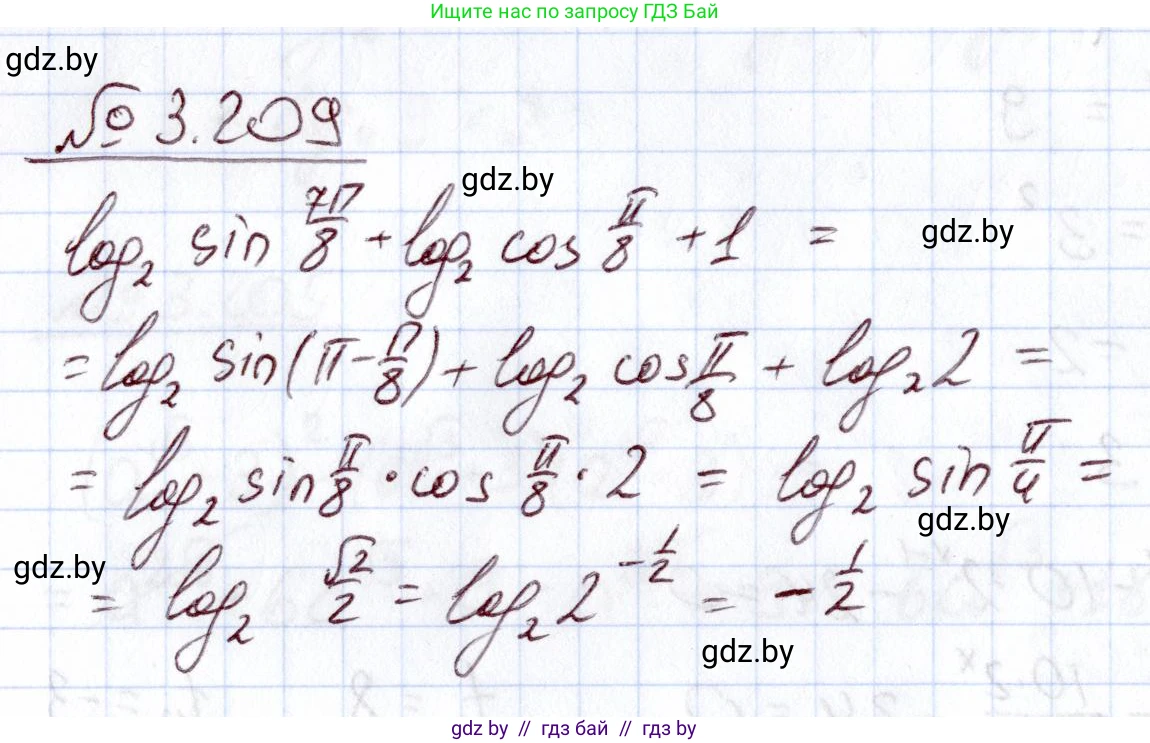 Ищите нас по запросу ГДЗ Бай
gdz.by
№ 3.209
gdz.by
log₂ sin 7π/8 + log₂ cos π/8 + 1 =
gdz.by
= log₂ sin(π - π/8) + log₂ cos π/8 + log₂ 2 =
= log₂ sin π/8 · cos π/8 · 2 = log₂ sin π/4 =
gdz.by
gdz.by
= log₂ √2/2 = log₂ 2^(-1/2) = -1/2
gdz.by
gdz by // гдз бай // гдз by